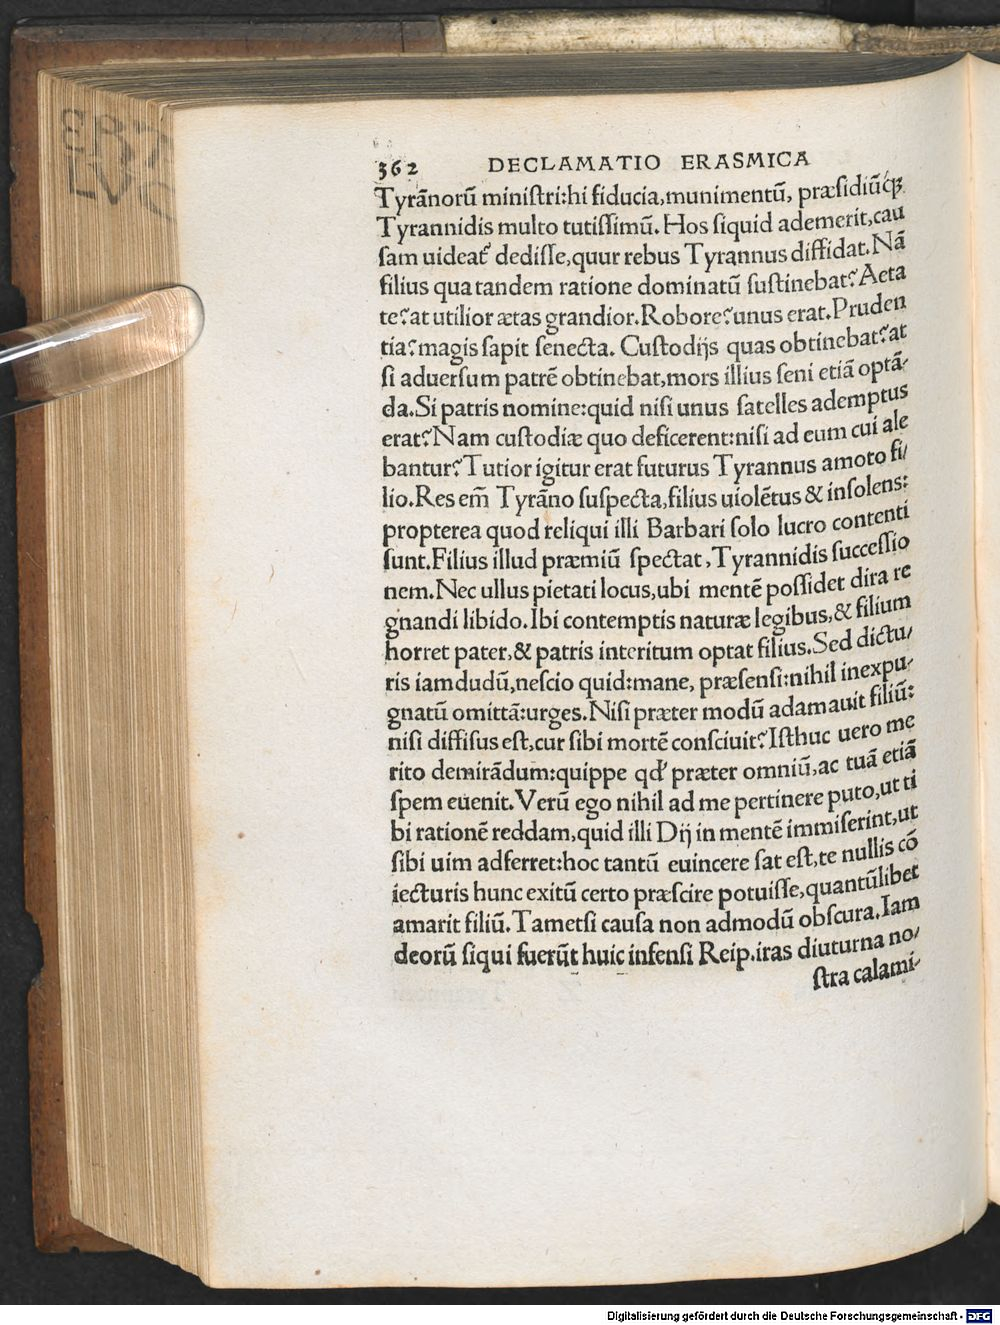 ERAS
LVC
362 DECLAMATIO ERASMICA
Tyrãnorũ miniſtri:hi fiducia,munimentũ, præſidiũq;
Tyrannidis multo tutiſſimũ. Hos ſiquid ademerit,cau
ſam uideat᷑ dediſſe,quur rebus Tyrannus diffidat. Nã
filius qua tandem ratione dominatũ ſuſtinebat? Aeta
te? at utilior ætas grandior. Robore? unus erat. Pruden
tia? magis ſapit ſenecta. Cuſtodijs quas obtinebat? at
ſi aduerſum patrẽ obtinebat,mors illius ſeni etiã optã-
da. Si patris nomine:quid niſi unus ſatelles ademptus
erat? Nam cuſtodiæ quo deficerent:niſi ad eum cui ale
bantur? Tutior igitur erat futurus Tyrannus amoto fi/
lio. Res em̃ Tyrãno ſuſpecta,filius uiolẽtus & inſolens:
propterea quod reliqui illi Barbari ſolo lucro contenti
ſunt. Filius illud præmiũ ſpectat, Tyrannidis ſucceſſio
nem. Nec ullus pietati locus,ubi mentẽ poſſidet dira re
gnandi libido. Ibi contemptis naturæ legibus,& filium
horret pater,& patris interitum optat filius. Sed dictu/
ris iamdudũ,neſcio quid:mane, præſenſi:nihil inexpu-
gnatũ omittã:urges. Niſi præter modũ adamauit filiũ:
niſi diffiſus eſt,cur ſibi mortẽ conſciuit? Iſthuc uero me
rito demirãdum:quippe qđ præter omniũ,ac tuã etiã
ſpem euenit. Verũ ego nihil ad me pertinere puto,ut ti
bi rationẽ reddam,quid illi Dij in mentẽ immiſerint,ut
ſibi uim adferret:hoc tantũ euincere ſat eſt,te nullis cõ
iecturis hunc exitũ certo præſcire potuiſſe,quantũlibet
amarit filiũ. Tametſi cauſa non admodũ obſcura. Iam
deorũ ſiqui fuerũt huic infenſi Reip. iras diuturna no/
ſtra calami-
Digitalisierung gefördert durch die Deutsche Forschungsgemeinschaft - DFG